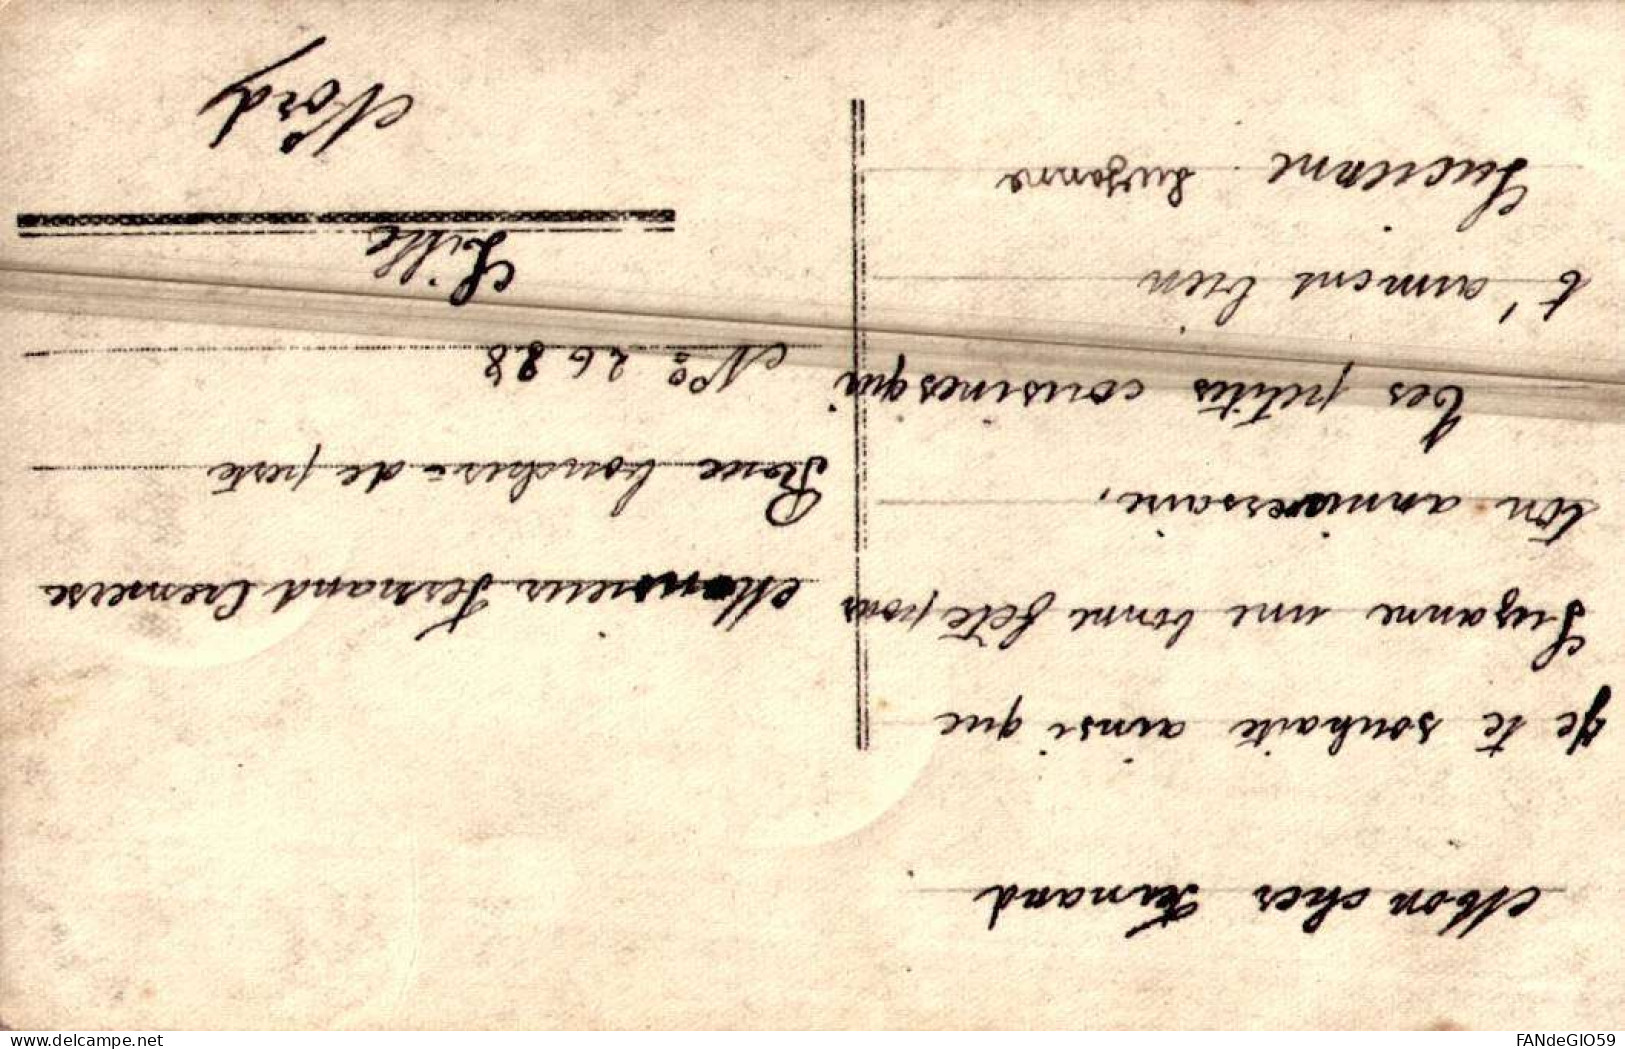 Mon cher Fernand
Je te souhaite ainsi que
Suzanne une bonne fête pour
ton anniversaire,
Tes petites cousines qui
t'aiment bien
Lucienne Suzanne
Monsieur Fernand
de poste
N° 2688
Lille
Nord
www.delcampe.net
FANdeGIO59